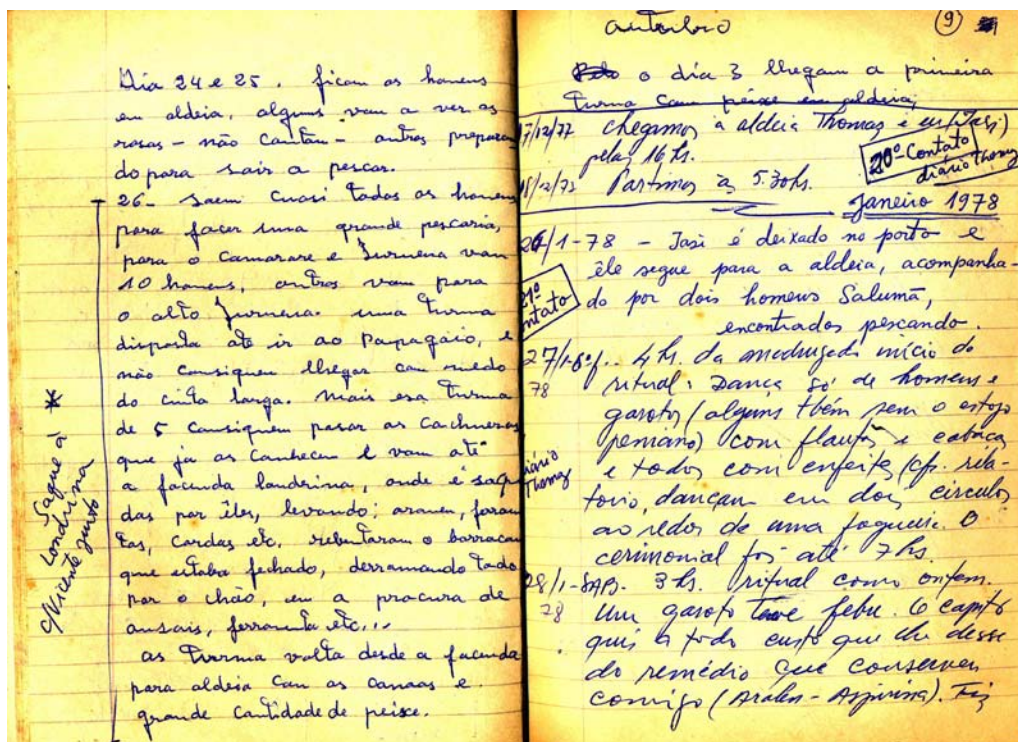 Dia 24 e 25. ficam os homens
em aldeia, alguns vam a ver as
rosas - não cantan - outros preparan
do para sair a pescar.
26- Saem cuasi todos os homens
para facer uma grande pescaria,
para o Camarare e Juruena vam
10 homens, outros vam para
o alto Juruena. uma turma
disposta ate ir ao Papagaio, e
não consiguen llegar con miedo
do cinta larga. mais esa turma
de 5 consiguen pasar as cachueras
que já as conhecen e vam até
a facenda londrina, onde é saquea
das por êles, levando; aramen,
tas, cordas etc. rebentaram o barracan
que estaba fechado, derramando todo
por o chão, en a procura de
ansois, ferramenta etc...
as turma volta desde a facenda
para aldeia con as canoas e
grande cantidade de peixe.
* Saque à
Londrina
c/Vicente junto
outoibro
9
o dia 3 llegam a primeira
turma com peixe em aldeia,
17/12/77 chegamos à aldeia Thomaz e eu (Jasi)
pelas 16 hs.
20º Contato
diário Thomaz
18/12/77 Partimos às 5.30hs.
Janeiro 1978
26/1-78 - Jasi é deixado no porto e
êle segue para a aldeia, acompanha-
21º
contato
do por dois homens Salumã,
encontrados pescando.
27/1-6ªf. 4 hs. da madrugada início do
78
ritual: Dança só de homens e
garotos (alguns tbém sem o estojo
peniano) com flautas e cabaça
diário
Thomaz
e todos com enfeites (cfr. rela-
tório, dançam em dois circulos
ao redor de uma fogueira. O
cerimonial foi até 7 hs.
28/1-SAB. 3 hs. Ritual como ontem.
78
Um garoto teve febre. O capitão
quis a todo custo que lhe desse
do remédio que conservei
comigo (Aralen - Aspirina). Fiz